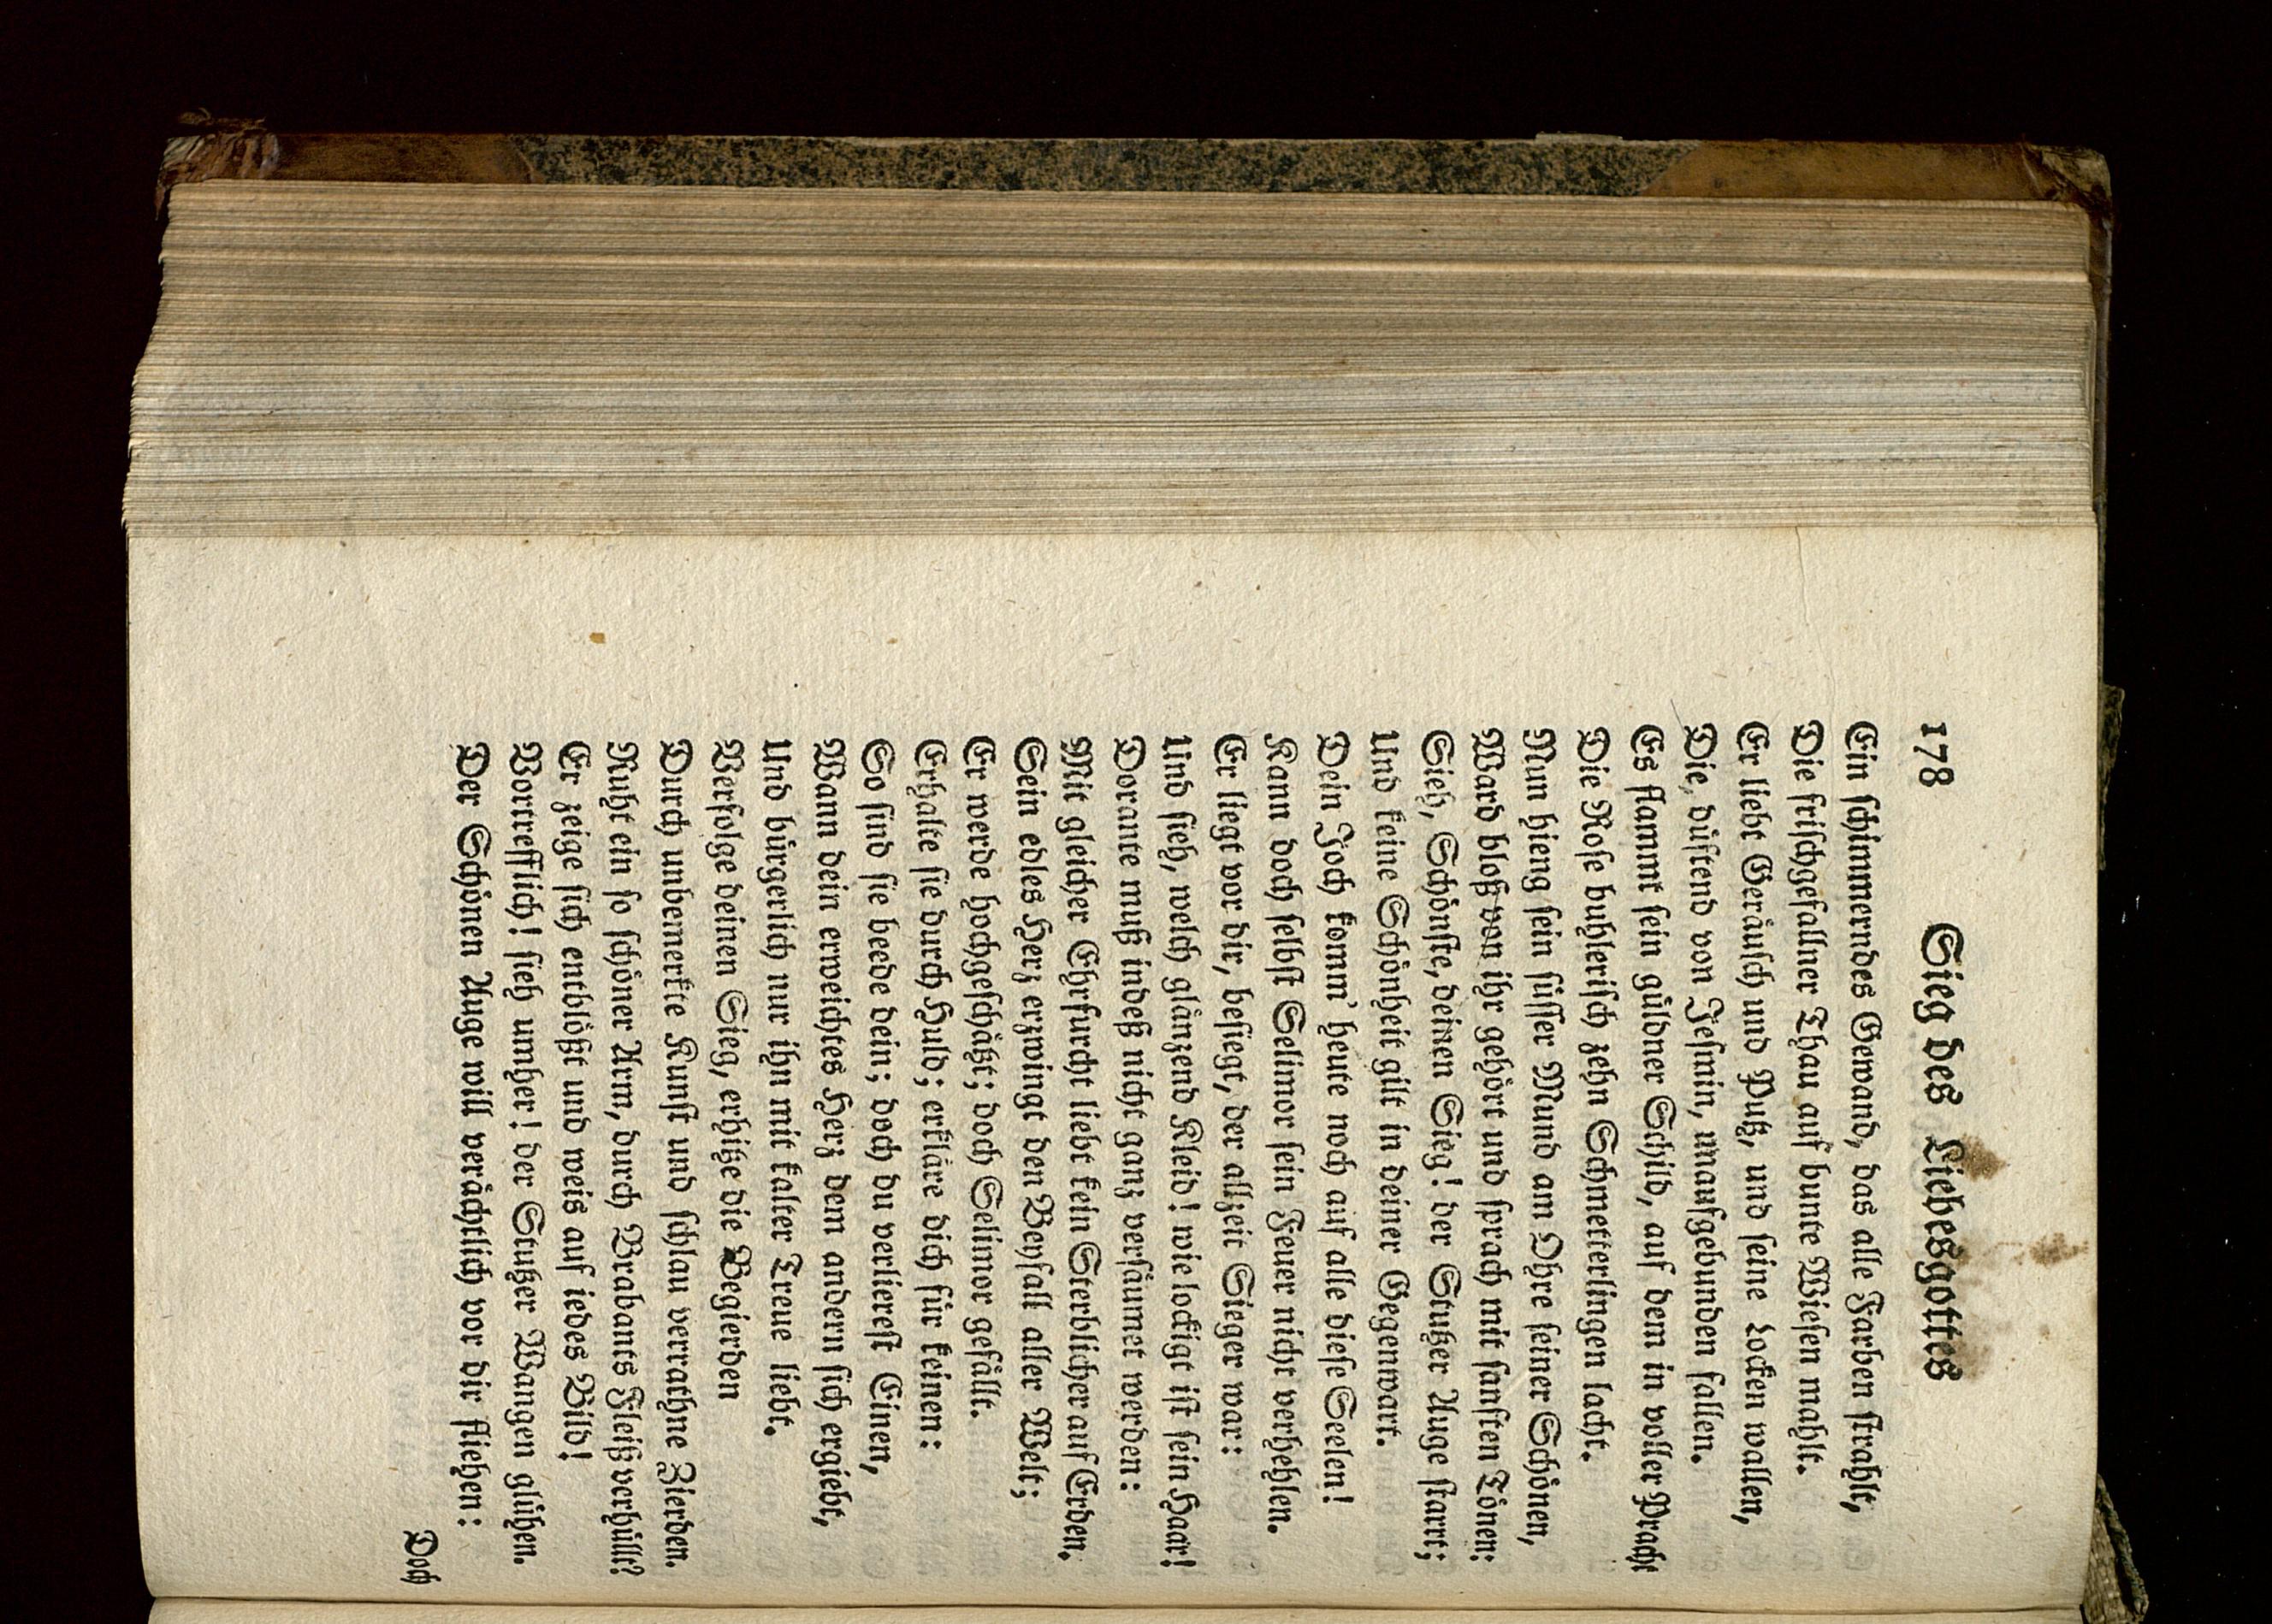 178 Sieg des Liebesgottes
Ein ſchimmerndes Gewand, das alle Farben ſtrahlt,
Die friſchgefallner Thau auf bunte Wieſen mahlt.
Er liebt Geräuſch und Putz, und ſeine Locken wallen,
Die, düftend von Jeſmin, unaufgebunden fallen.
Es flammt ſein güldner Schild, auf dem in voller Pracht
Die Roſe buhleriſch zehn Schmetterlingen lacht.
Nun hieng ſein ſüſſer Mund am Ohre ſeiner Schönen,
Ward bloß von ihr gehört und ſprach mit ſanften Tönen:
Sieh, Schönſte, deinen Sieg! der Stutzer Auge ſtarrt;
Und keine Schönheit gilt in deiner Gegenwart.
Dein Joch komm' heute noch auf alle dieſe Seelen!
Kann doch ſelbſt Selimor ſein Feuer nicht verhehlen.
Er liegt vor dir, beſiegt, der allzeit Sieger war:
Und ſieh, welch glänzend Kleid! wie lockigt iſt ſein Haar!
Dorante muß indeß nicht ganz verſäumet werden:
Mit gleicher Ehrfurcht liebt kein Sterblicher auf Erden.
Sein edles Herz erzwingt den Beyfall aller Welt;
Er werde hochgeſchätzt; doch Selimor gefällt.
Erhalte ſie durch Huld; erkläre dich für keinen:
So ſind ſie beede dein; doch du verliereſt Einen,
Wann dein erweichtes Herz dem andern ſich ergiebt,
Und bürgerlich nur ihn mit kalter Treue liebt.
Verfolge deinen Sieg, erhitze die Begierden
Durch unbemerkte Kunſt und ſchlau verrathne Zierden.
Ruht ein ſo ſchöner Arm, durch Brabants Fleiß verhüllt?
Er zeige ſich entblößt und weis auf iedes Bild!
Vortrefflich! ſieh umher! der Stutzer Wangen glühen.
Der Schönen Auge will verächtlich vor dir fliehen:
Doch